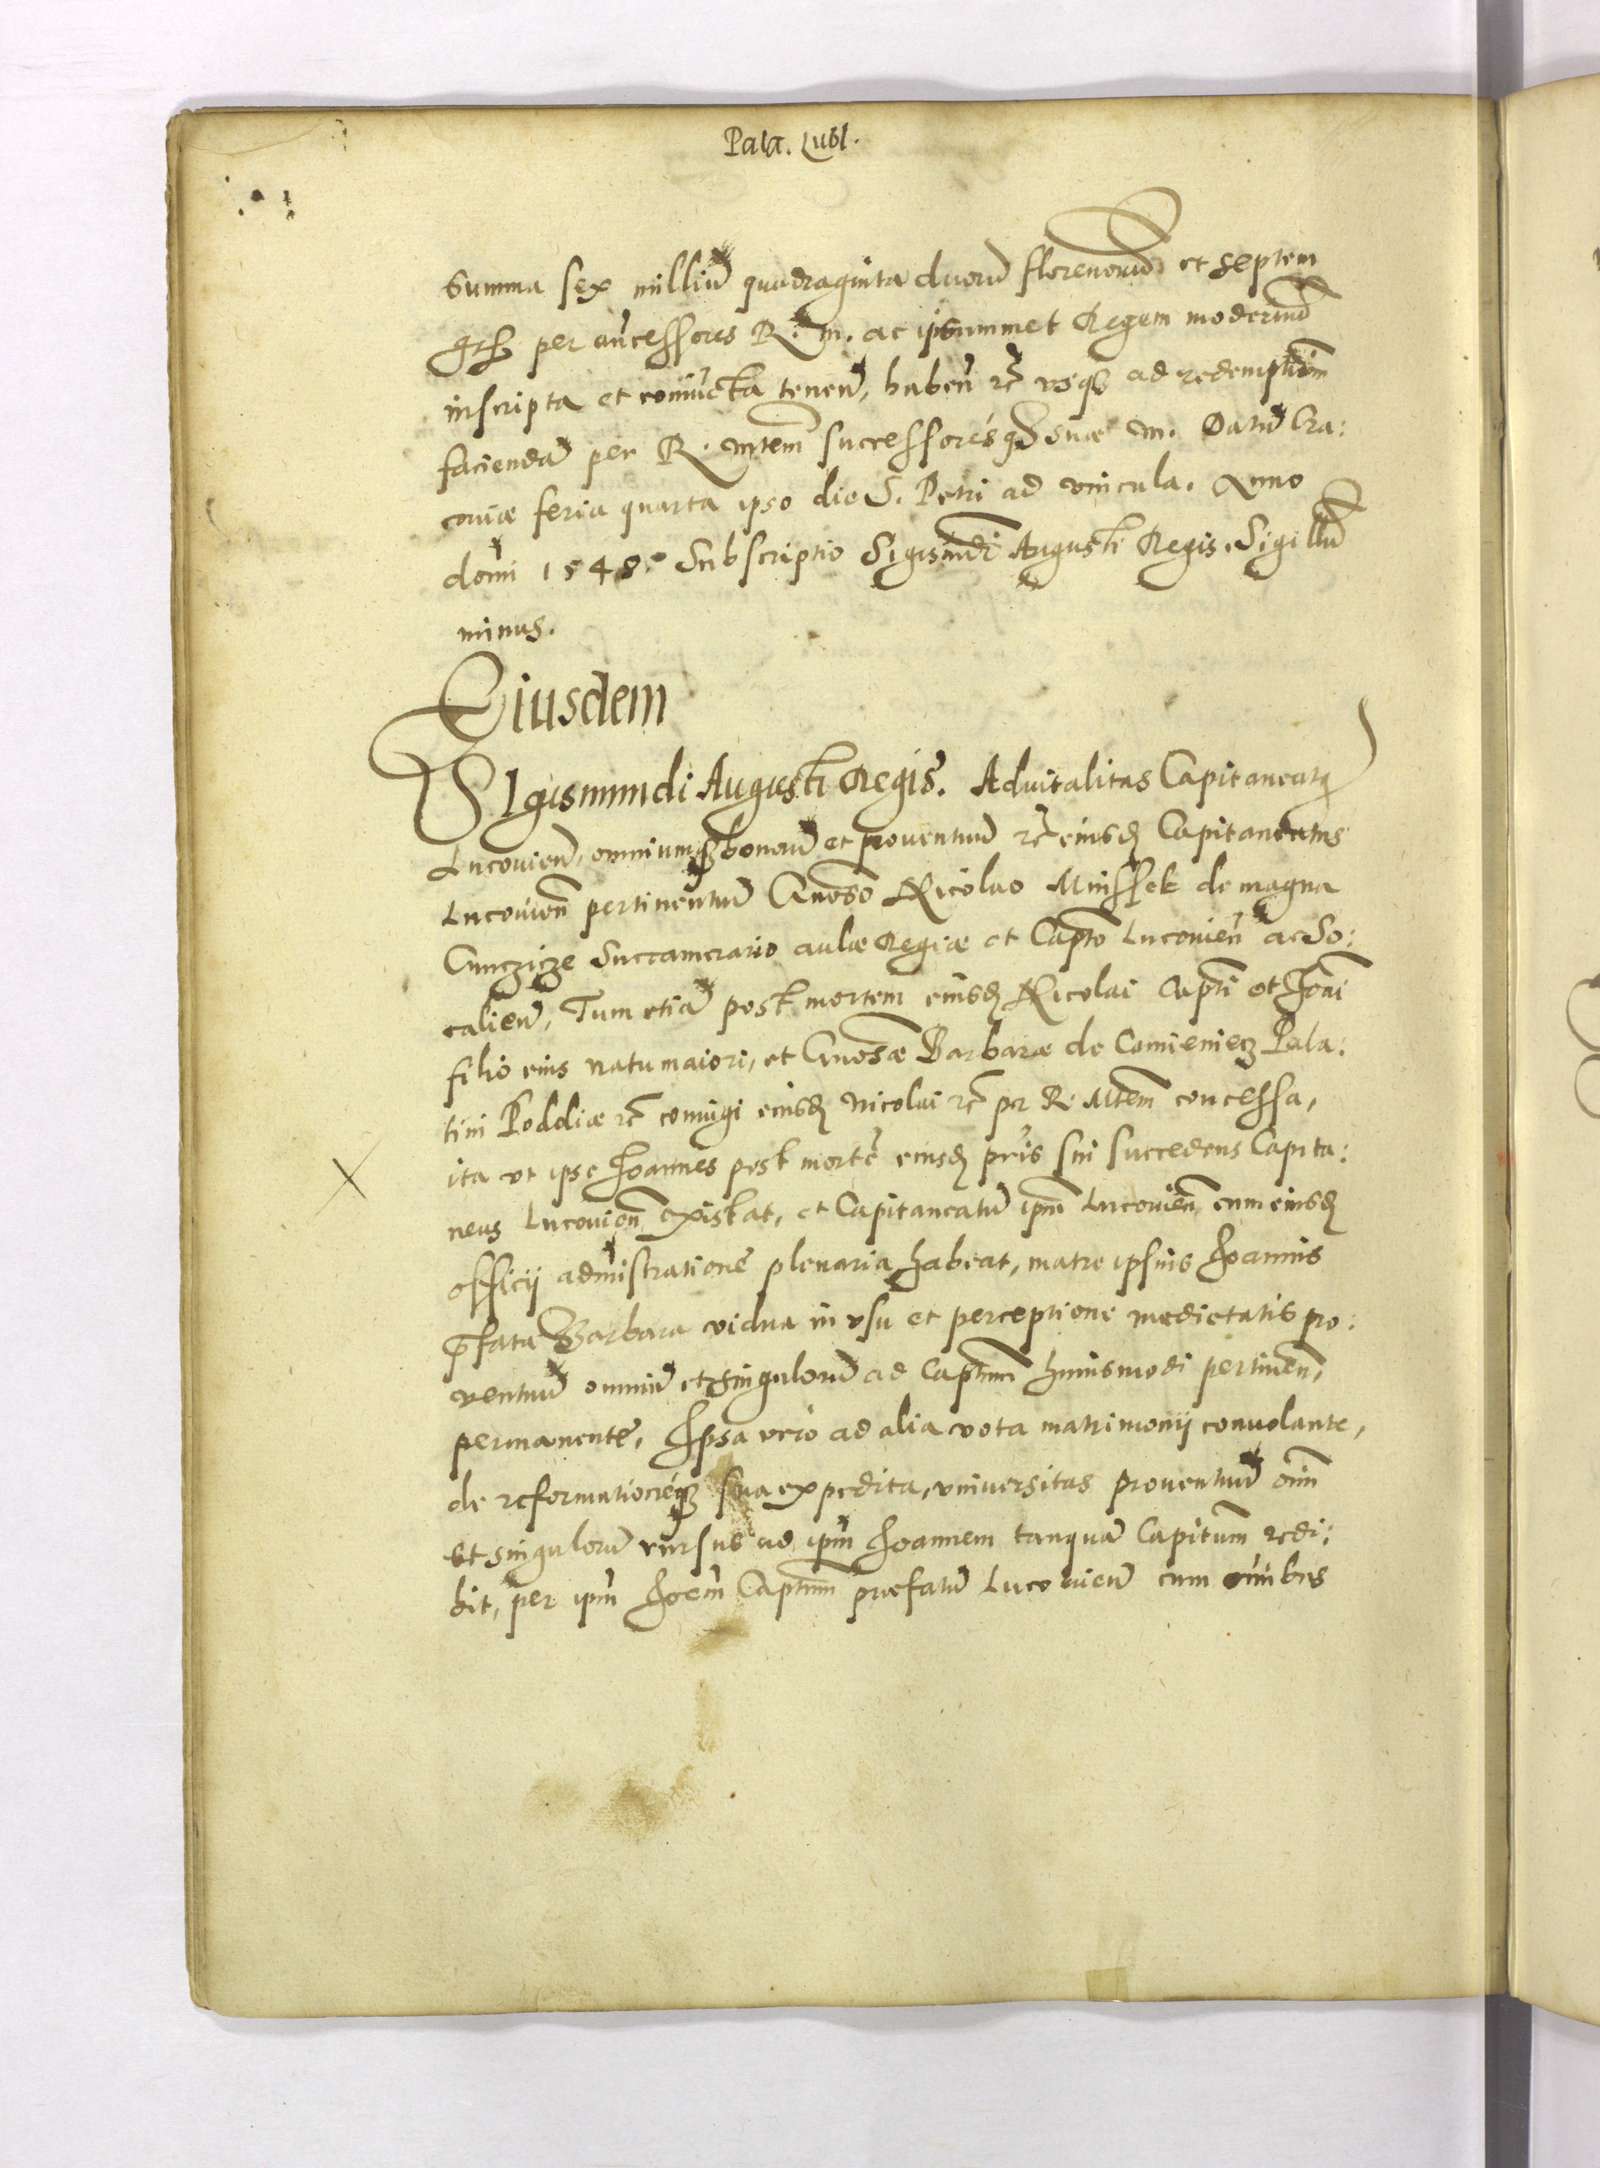 Pala. Lubl.
Summa sex milliū quadraginta duorū florenorū et septem
grꝭ per an̄cessores R. m. ac ipsummet Regem modernū
inscripta et coniūcta tenen̄, haben̄ rc̄ vsqȝ ad redemptiōm
faciendā per R. mtem successoresqȝ suæ m. Datū Cra:
couiæ feria quarta ipso die S. Petri ad vincula. Anno
domi 1548. Subscriptio Sigismūdi Augusti Regis. Sigillū
minus.
Eiusdem
SIgismundi Augusti Regis. Aduitalitas Capitaneatꝯ
Lucouien̄, omniumqȝ bonorū et prouentuū rc̄ eiusd Capitaneatus
Lucouien̄ pertinentiū Gnoso Nicolao Mnissek de magna
Cunczicze Succamerario aulæ Regiæ et Capto Lucouien̄ ac So:
calien̄, Tum etiā post mortem eiusd Nicolai Capti et Joan̄i
filio eius natu maiori, et Gnosæ Barbaræ de Camieniecz Pala:
tini Podoliæ rc̄ coniugi eiusd Nicolai rc̄ per R. Mtem concessa,
ita vt ipse Joannes post mortē eiusd pr̄is sui succedens Capita:
neus Lucouien̄ existat, et Capitaneatū ipm̄ Lucouien̄ cum eiusd
officij admistratione plenaria habeat, matre ipsius Joannis
p̄fata Barbara vidua in vsu et perceptione medietatis pro:
uentuū omniū et singulorū ad Captum huiusmodi pertinen̄,
permanente, Ipsa vero ad alia vota matrimonij conuolante,
de reformationeqȝ sua expedita, vniuersitas prouentuū oīm
et singulorū rursus ad ipm̄ Joannem tanquā Capitum redi:
bit, per ipm̄ Joem̄ Captum præfatū Lucouien̄ cum oīnibus